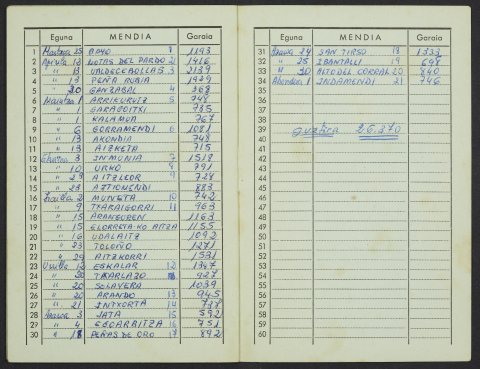 Eguna MENDIA Garaia
1 25 BOYO 1 1193
2 Aprila 12 LOTAS DEL PARDO 2 1416
3 " 13 VALDECEBOLLAS 3 2139
4 " 13 PEÑA RUBIA 1929
5 " 20 GANZABAL 4 368
6 1 ARRIKURUTZ 5 748
7 " 1 GARAGOITXI 785
8 " 1 KALAMUA 767
9 " 6 GORRAMENDI 6 1081
10 " 13 AKONDIA 748
11 " 13 AIZKETA 715
12 3 INMUNIA 7 1518
13 10 URKO 8 791
14 " 29 AITZLEOR 9 728
15 " 23 AZTIONENDI 883
16 2 MUNETA 10 742
17 " 9 TXARAIGORRI 11 963
18 " 15 ARANGUREN 1163
19 " 15 ELORRETA-KO AITZA 1155
20 " 16 UDALAITZ 1092
21 " 23 TOLOÑO 1271
22 " 29 AITZKORRI 1531
23 Urilla 12 ESKALAR 12 1307
24 " 20 TXARLAZO 927
25 " 20 SOLAVERA 1039
26 " 20 ARANDO 13 945
27 " 21 INTXORTA 14 737
28 3 JATA 15 592
29 " 4 EGOARBITZA 16 751
30 " 18 PEÑAS DE ORO 17 892
Eguna MENDIA Garaia
31 24 SAN TIRSO 18 1333
32 " 25 IBANTALLI 19 698
33 " 30 ALTO DEL CORRAL 20 840
34 1 INDAMENDI 21 746
35
36
37
38
39 guztira 26.370
40
41
42
43
44
45
46
47
48
49
50
51
52
53
54
55
56
57
58
59
60